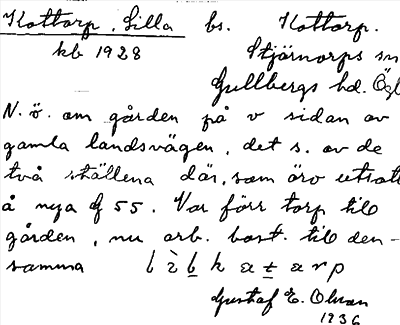 Kottorp, Lilla bs. Kottorp.
kb 1928 Stjärnorps sn
Gullbergs hd. Ögl
N. ö. om gården på v sidan av
gamla landsvägen, det s. av de
två ställena där, som äro utsatt
å nya G 55. Var förr torp till
gården, nu arb. bost. till den-
samma l ì l k a t a r p
Gustaf E. Olsson
1936